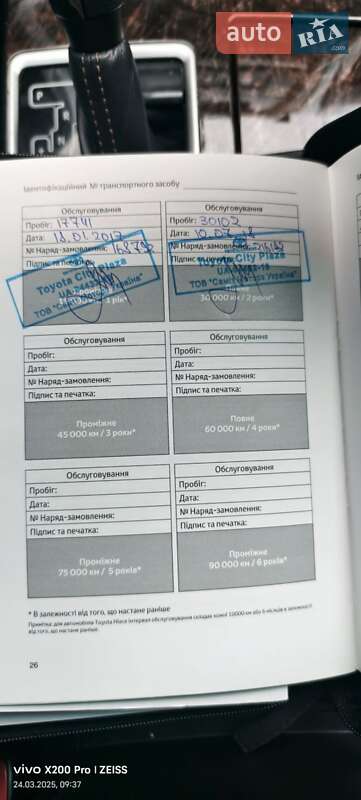 auto RIA.com
Ідентифікаційний № транспортного засобу
Обслуговування
Пробіг: 17711
Дата: 18.01.2017
№ Наряд-замовлення: 168792
Підпис та печатка:
Toyota City Plaza
ТОВ "Сент
Україна"
15 000 км / 1 рік*
Обслуговування
Пробіг: 30102
Дата: 10.07.
№ Наряд-замовлення:
Підпис та печатка:
Toyota City Plaza
ТОВ "Сент
Україна"
30 000 км / 2 роки*
Обслуговування
Пробіг:
Дата:
№ Наряд-замовлення:
Підпис та печатка:
Проміжне
45 000 км / 3 роки*
Обслуговування
Пробіг:
Дата:
№ Наряд-замовлення:
Підпис та печатка:
Повне
60 000 км / 4 роки*
Обслуговування
Пробіг:
Дата:
№ Наряд-замовлення:
Підпис та печатка:
Проміжне
75 000 км / 5 років*
Обслуговування
Пробіг:
Дата:
№ Наряд-замовлення:
Підпис та печатка:
Проміжне
90 000 км / 6 років*
* В залежності від того, що настане раніше
Примітка: для автомобілів Toyota Hiace інтервал обслуговування складає кожні 10000 км або 6 місяців в залежності
від того, що настане раніше.
26
vivo X200 Pro | ZEISS
24.03.2025, 09:37